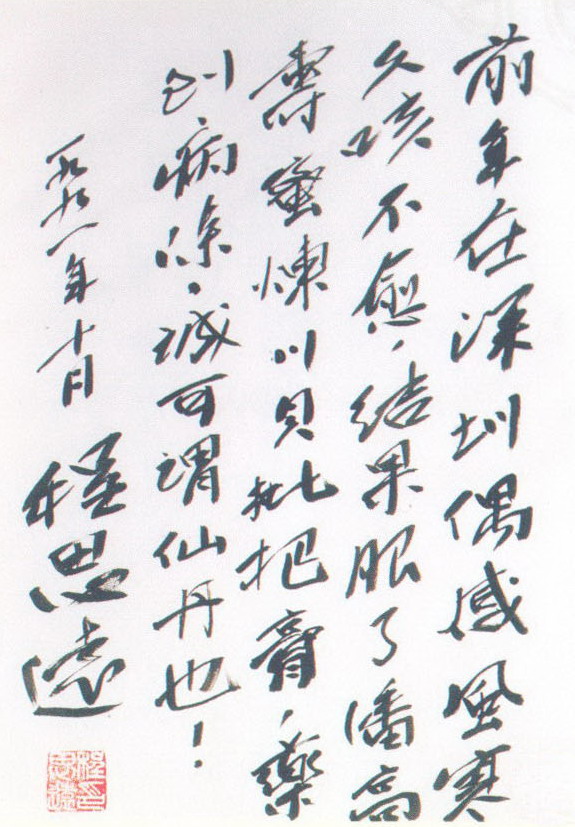 前年在深圳偶感風寒
久咳不愈，结果服了潘高
壽蜜煉川贝枇杷膏，藥
到病除，诚可謂仙丹也！
一九九一年十月
程思遠
程思遠印